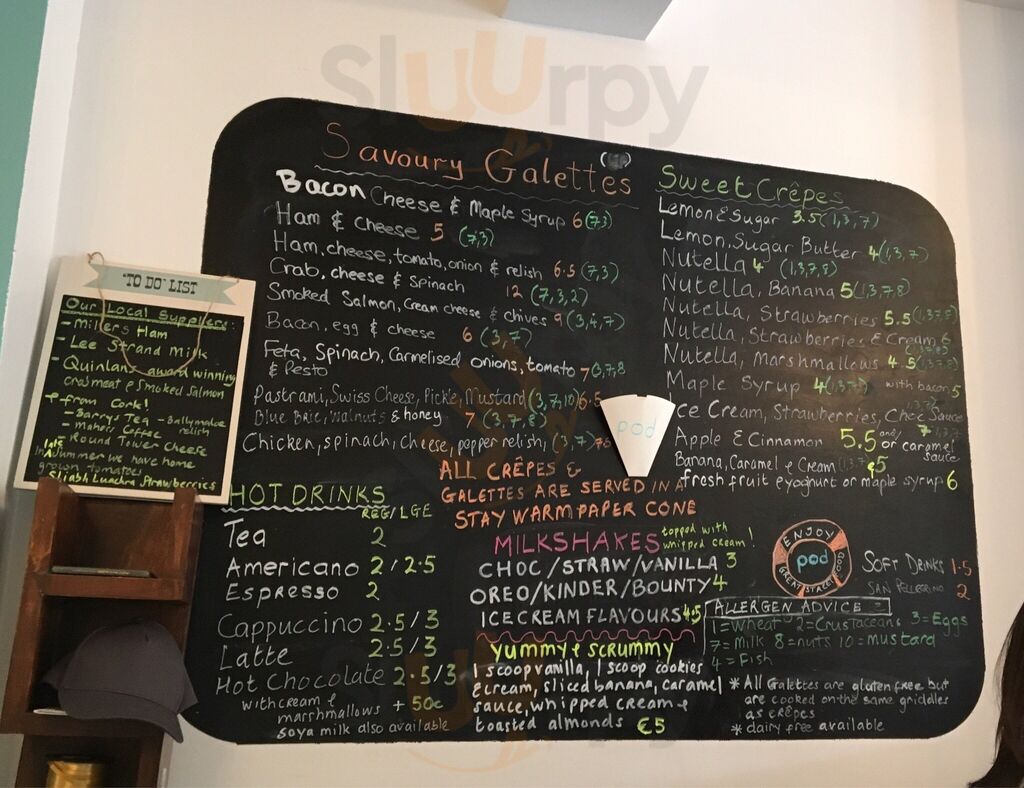 Sluurpy
Savoury Galettes
Bacon Cheese & Maple Syrup 6 (7,3)
Ham & Cheese 5 (7,3)
Ham, cheese, tomato, onion & relish 6.5 (7,3)
Crab, cheese & Spinach 12 (7,3,2)
Smoked Salmon, Cream cheese & chives 9 (3,4,7)
Bacon, egg & cheese 6 (3,7)
Feta, Spinach, Carmelised onions, tomato 7 (3,7,8
& Pesto
Pastrami, Swiss Cheese, Pickle, Mustard (3,7,10) 6.5
Blue Brie, Walnuts & honey 7 (3,7,8)
Chicken, spinach, cheese, pepper relish, (3,7)
ALL CRÊPES &
GALETTES ARE SERVED IN A
STAY WARM PAPER CONE
Sweet Crêpes
Lemon & Sugar 3.5 (1,3,7)
Lemon, Sugar Butter 4 (1,3,7)
Nutella 4 (1,3,7,8)
Nutella, Banana 5 (1,3,7,8)
Nutella, Strawberries 5.5 (1,3,7,8)
Nutella, Strawberries & Cream 6
Nutella, Marshmallows 4.5 (1,3,7,8)
Maple Syrup 4 (1,3,7) with bacon 5
ce Cream, Strawberries, Choc Sauce
Apple & Cinnamon 5.5 and/or caramel sauce
Banana, Caramel & Cream (1,3,7 €5
fresh fruit & yoghurt or maple syrup 6
pod
"TO DO" LIST
Our Local Suppliers:
- Millers Ham
- Lee Strand Milk
- Quinlans award winning
crabmeat & Smoked Salmon
& from Cork!
- Barrys Tea - Ballymaloe relish
- Mahers Coffee
- Round Tower Cheese
In late Summer we have home
grown tomatoes
Sliabh Luachra Strawberries
HOT DRINKS
REG/LGE
Tea 2
Americano 2/2.5
Espresso 2
Cappuccino 2.5/3
Latte 2.5/3
Hot Chocolate 2.5/3
with cream &
marshmallows + 50c
soya milk also available
MILKSHAKES topped with whipped cream!
CHOC/STRAW/VANILLA 3
OREO/KINDER/BOUNTY 4
ICECREAM FLAVOURS 4.5
YUMMY & SCRUMMY
1 scoop vanilla, 1 scoop cookies
& cream, sliced banana, caramel
sauce, whipped cream &
toasted almonds €5
ENJOY
pod
GOOD
GREAT STREET
SOFT DRINKS 1.5
SAN PELLEGRINO 2
ALLERGEN ADVICE
1 = Wheat 2 = Crustaceans 3 = Eggs
7 = Milk 8 = nuts 10 = mustard
4 = Fish
* All Galettes are gluten free but
are cooked on the same griddles
as crêpes
* dairy free available